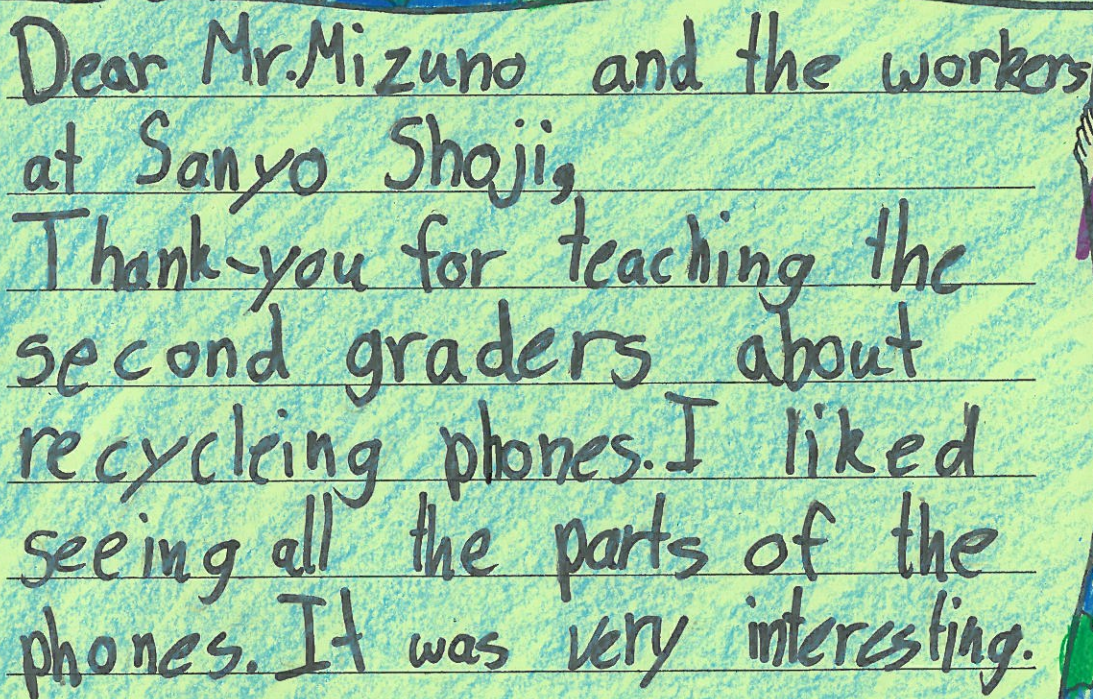 Dear Mr.Mizuno and the workers
at Sanyo Shoji,
Thank-you for teaching the
second graders about
recycleing phones.I liked
seeing all the parts of the
phones. It was very interesting.